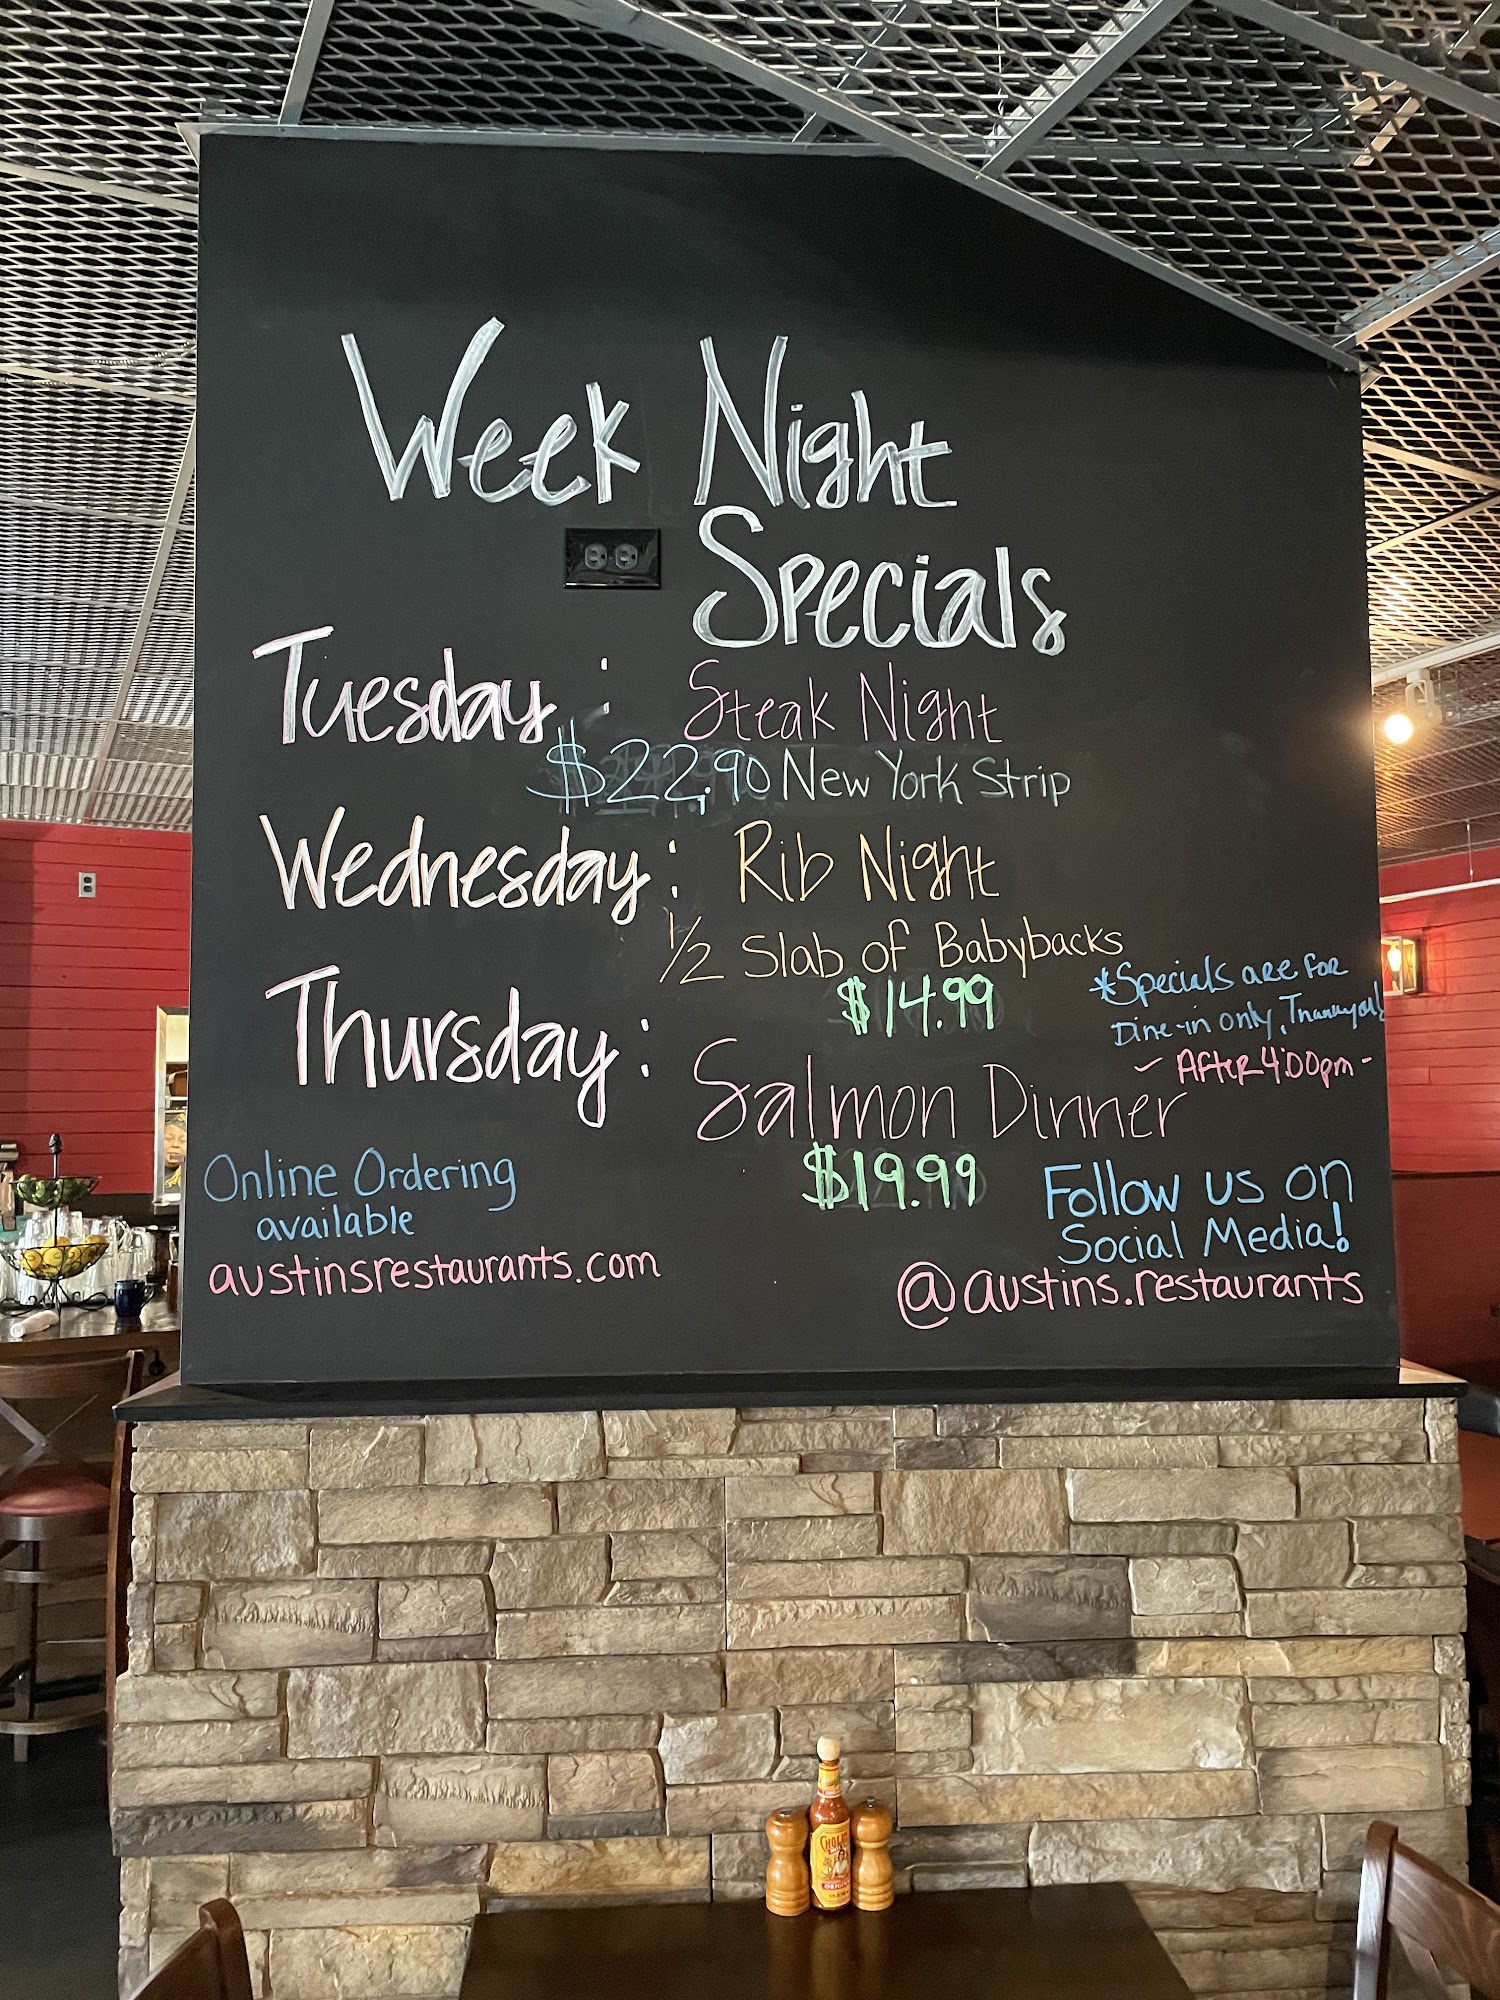 Week Night
Specials
Tuesday : Steak Night
$22.90 New York Strip
Wednesday : Rib Night
1/2 Slab of Babybacks
$14.99
*Specials are for
Dine-in only, Thank you!
- After 4:00pm -
Thursday : Salmon Dinner
$19.99
Online Ordering
available
austinsrestaurants.com
Follow us on
Social Media!
@austins.restaurants
CHOLULA
ORIGINAL